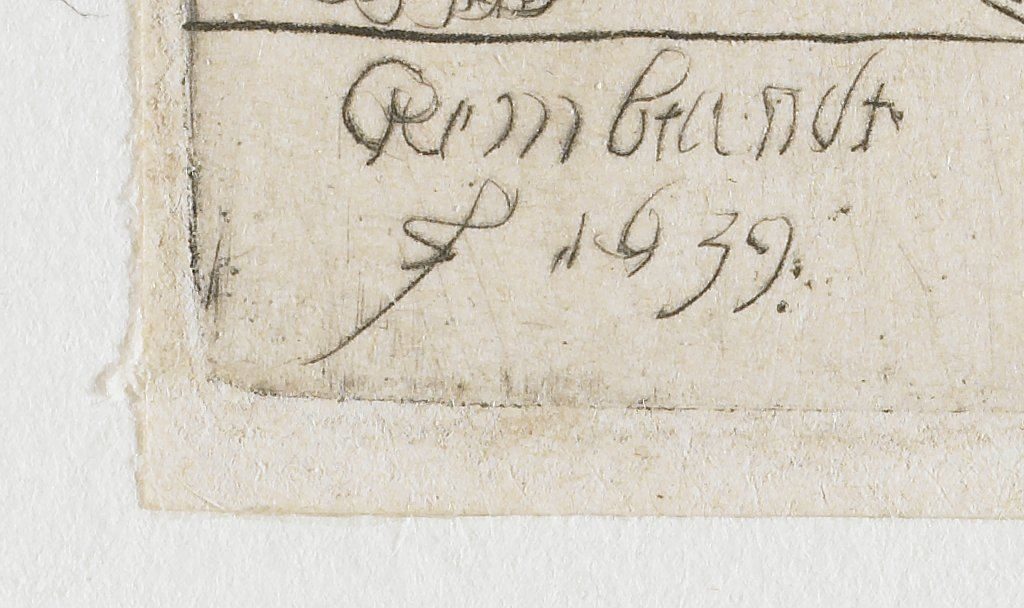 Rembrandt
f 1639.